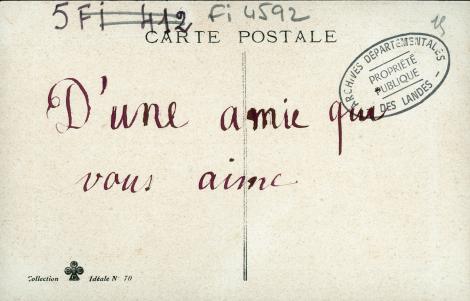 5 Fi 412 Fi 4592
15
CARTE POSTALE
ARCHIVES DÉPARTEMENTALES
PROPRIÉTÉ
PUBLIQUE
DES LANDES
D'une amie qui
vous aime
Collection Idéale N° 70